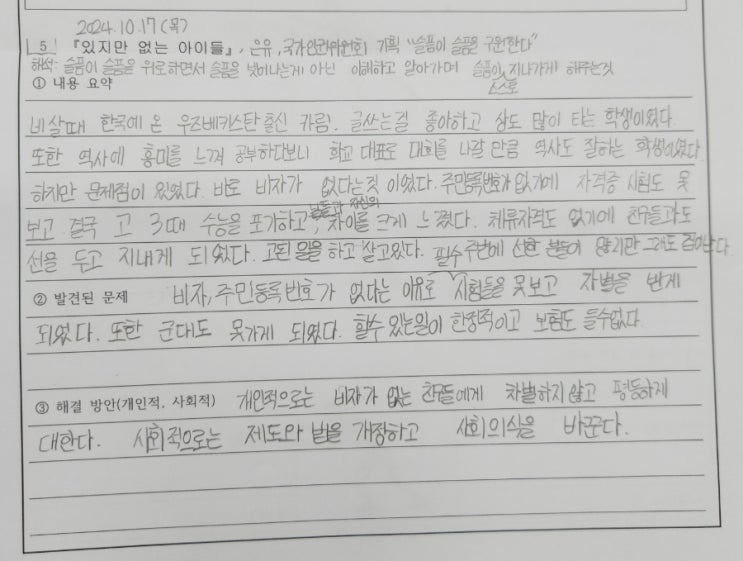 2024.10.17(목)
5 『있지만 없는 아이들』, 은유, 국가인권위원회 기획 "슬픔이 슬픔을 구원한다"
해석: 슬픔이 슬픔을 위로하면서 슬픔을 벗어나는게 아닌 이해하고 알아가며 슬픔이 스스로 지나가게 해주는것
① 내용 요약
네살때 한국에 온 우즈베키스탄 출신 카림. 글쓰는걸 좋아하고 상도 많이 타는 학생이였다.
또한 역사에 흥미를 느껴 공부하다보니 학교 대표로 대회를 나갈 만큼 역사도 잘하는 학생이였다.
하지만 문제점이 있었다. 바로 비자가 없다는것 이였다. 주민등록번호가 없기에 자격증 시험도 못
보고 결국 고3때 수능을 포기하고, 남들과 자신의 차이를 크게 느꼈다. 체류자격도 없기에 친구들과도
선을 두고 지내게 되었다. 고된 일을 하고 살고있다. 주변에 선한 분들이 많지만 그래도 겁이난다.
② 발견된 문제 비자, 주민등록번호가 없다는 이유로 필수 시험들을 못보고 차별을 받게
되었다. 또한 군대도 못가게 되었다. 할수 있는일이 한정적이고 보험도 들수없다.
③ 해결 방안(개인적, 사회적) 개인적으로는 비자가 없는 친구들에게 차별하지 않고 평등하게
대한다. 사회적으로는 제도와 법을 개정하고 사회의식을 바꾼다.